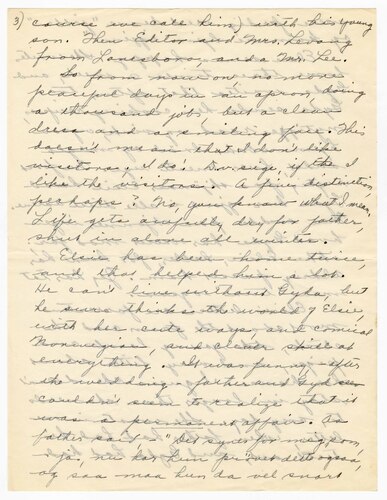 3) course" we call him) with his young
son. Then Editor and Mrs. Levang
from Lanesboro, and a Mr. Lee.
So from now on no more
peaceful days in an apron, doing
a thousand jobs, but a clean
dress and a smiling face. This
doesn't mean that I don't like
visitors; I do. Dw. sige, if the I
like the visitors. A fine distinction,
perhaps? No, you know what I mean.
Life gets awfully dry for father,
shut in alone all winter.
Elsie has been home twice,
and that helped him a lot.
He can't live without Gyda, but
he sure thinks the world of Elsie,
with her cute ways, and comical
Norwegian, and clever skill at
everything. It was funny, after
the wedding - father and Gyda
couldn't seem to realize that it
was a permanent affair. As
father said - "Det synes for mig som,
ja, nu har hun prøvet dette ogsaa,
og saa maa hun da vel snart